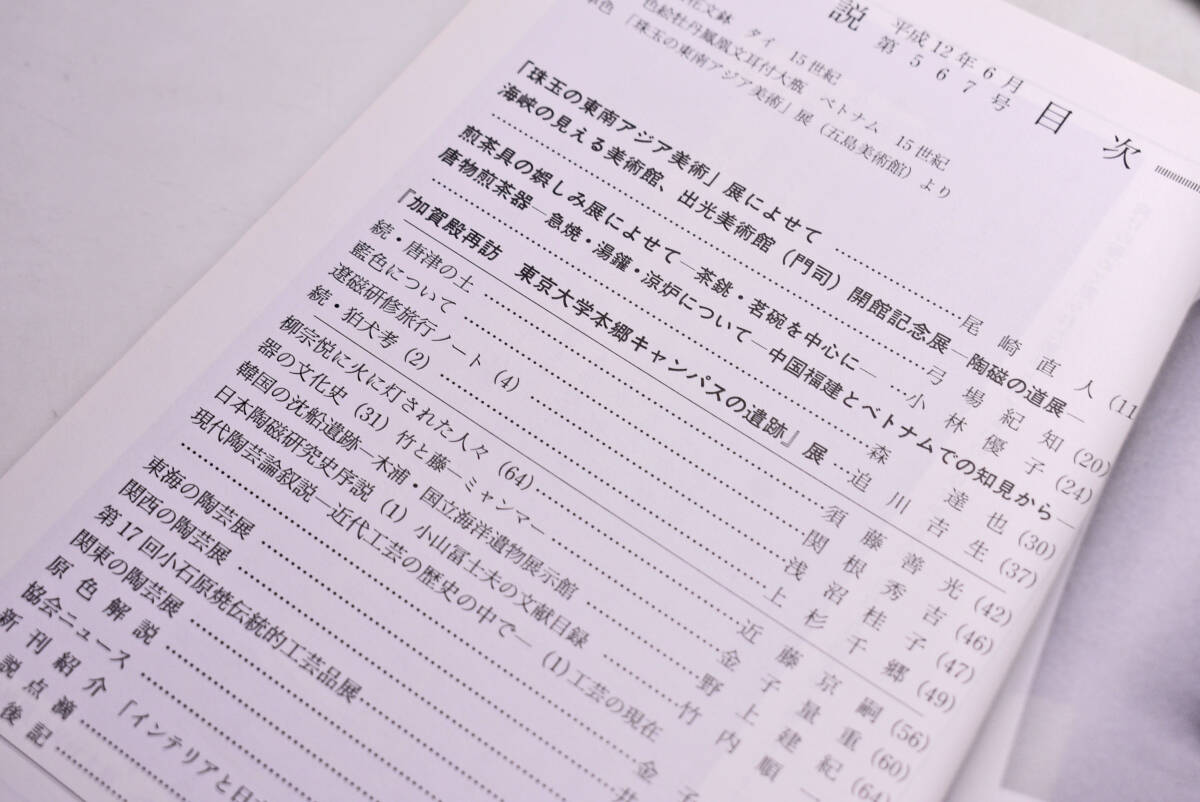 説 平成12年6月 第567号 目次
花文鉢 タイ 15世紀
色絵牡丹鳳凰文耳付大瓶 ベトナム 15世紀
「珠玉の東南アジア美術」展(五島美術館)より
「珠玉の東南アジア美術」展によせて 尾崎直人 (11
海峡の見える美術館、出光美術館(門司)開館記念展―陶磁の道展―
弓場紀知 (20)
煎茶具の娯しみ展によせて―茶銚・茗碗を中心に― 小林優子 (24)
唐物煎茶器―急焼・湯鑵・涼炉について―中国福建とベトナムでの知見から―
森達也 (30)
『加賀殿再訪 東京大学本郷キャンパスの遺跡』展 追川吉生 (37)
続・唐津の土 須藤善光 (42)
藍色について 関根秀吉 (46)
遼磁研修旅行ノート (4) 浅沼桂子 (47)
続・狛犬考 (2) 上杉千郷 (49)
柳宗悦に火に灯された人々 (64) 近藤京嗣 (56)
器の文化史 (31) 竹と藤―ミャンマー 金子量重 (60)
韓国の沈船遺跡―木浦・国立海洋遺物展示館 野上建紀 (64)
日本陶磁研究史序説 (1) 小山冨士夫の文献目録 竹内順
現代陶芸論叙説―近代工芸の歴史の中で― (1) 工芸の現在
金子
東海の陶芸展 井
関西の陶芸展
第17回小石原焼伝統的工芸品展
関東の陶芸展
原色解説
協会ニュース
新刊紹介 「インテリアと日
説点滴
後記